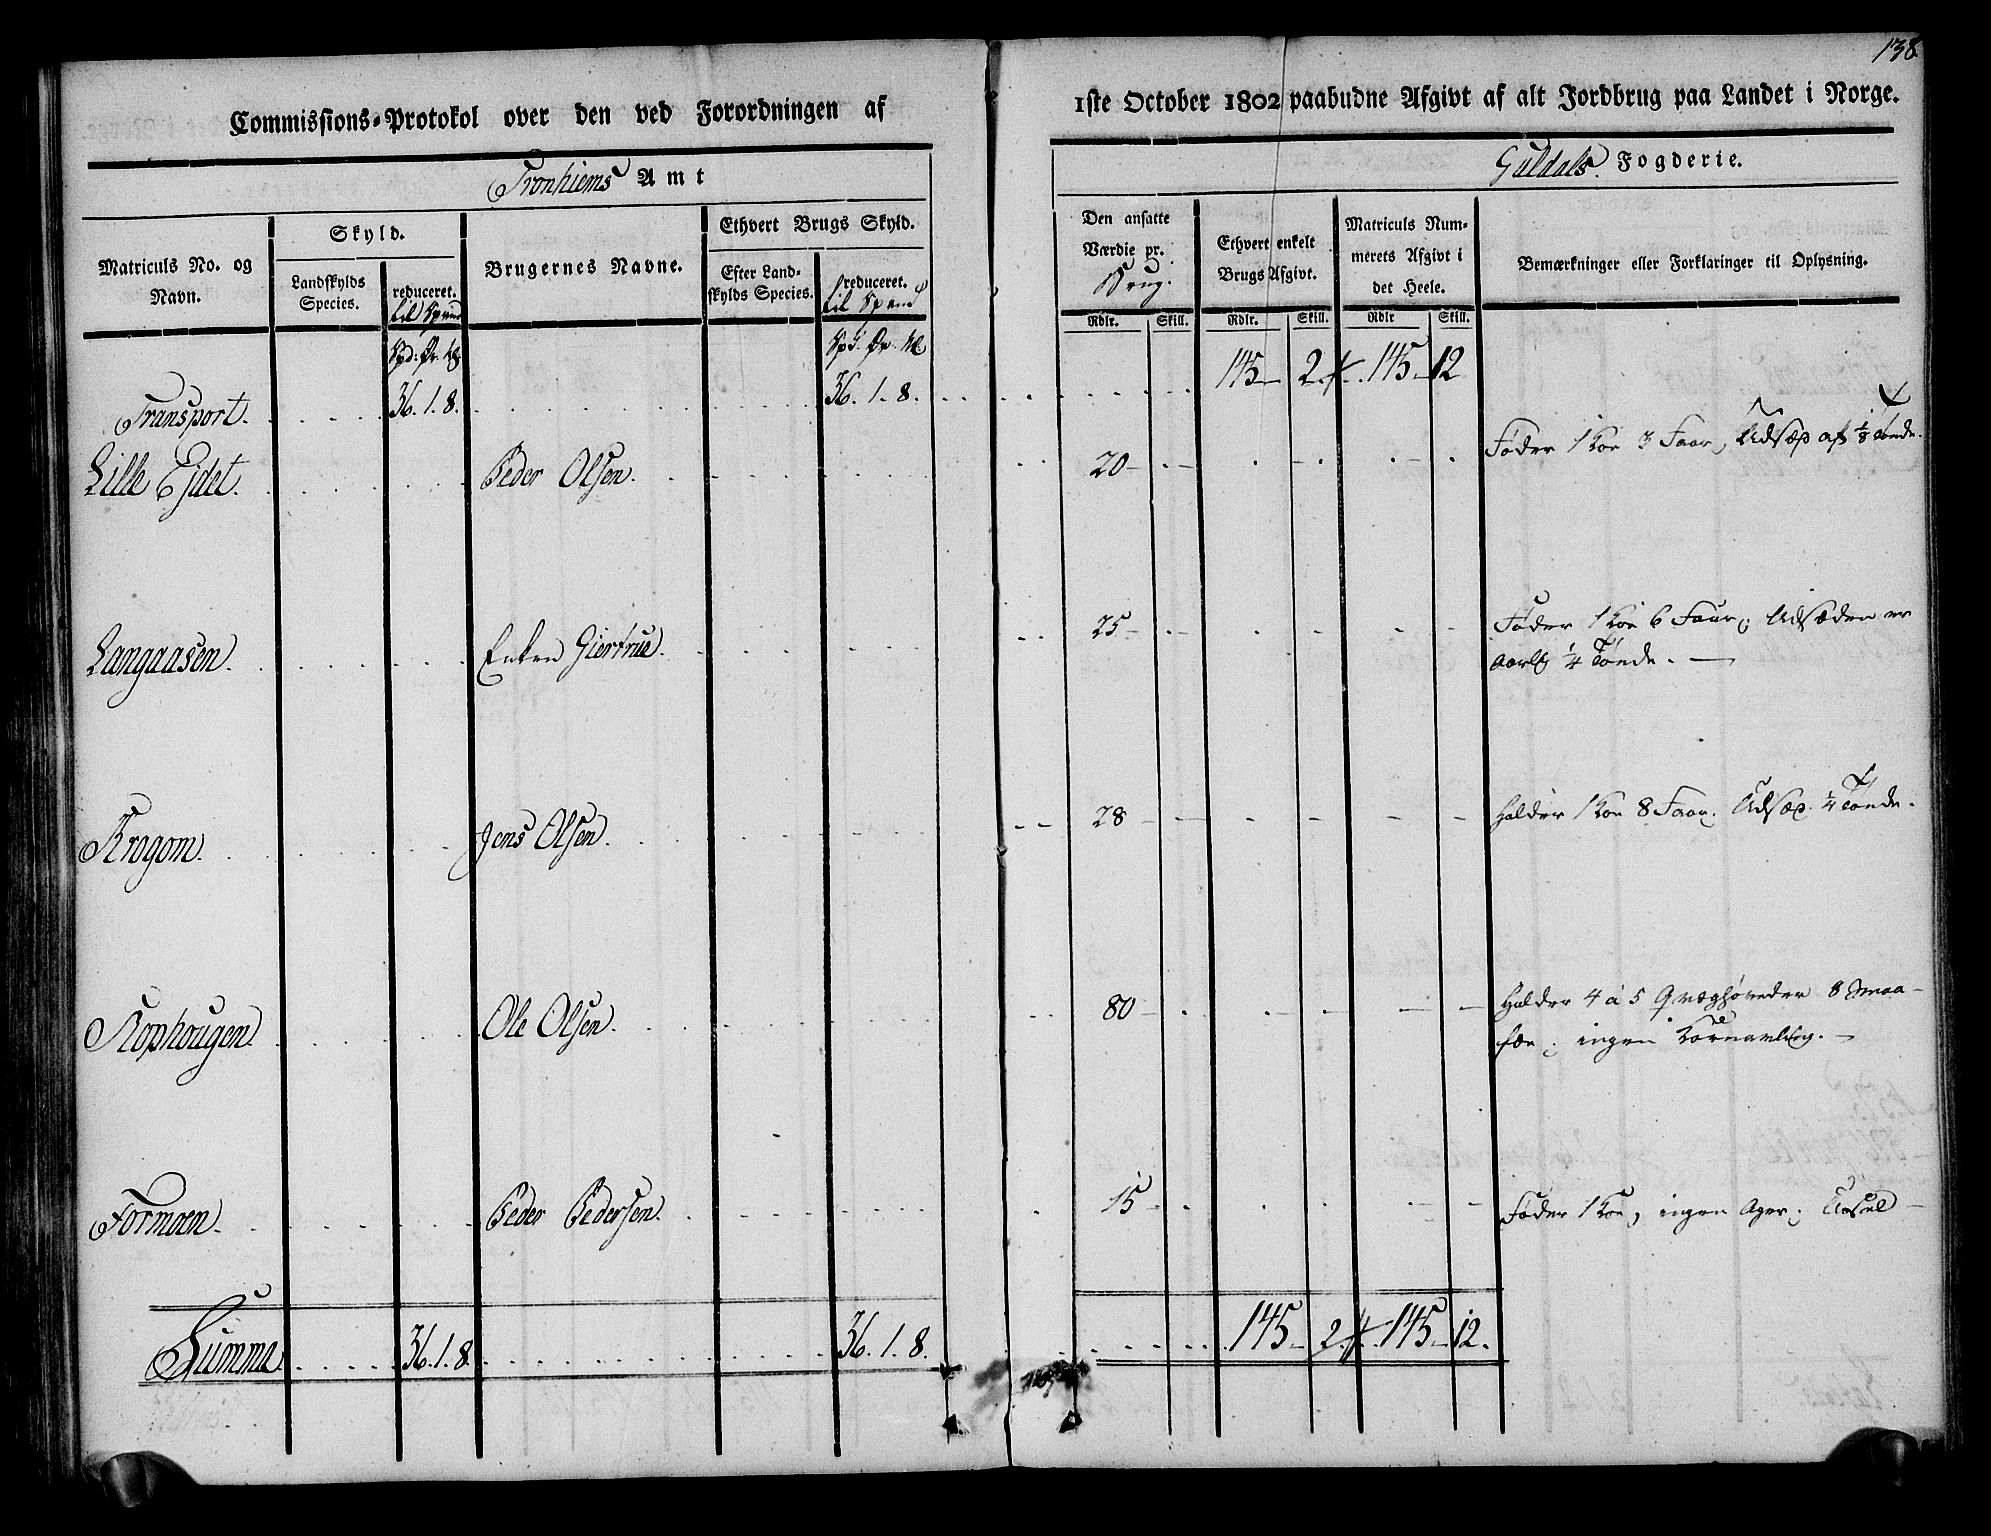 138
Commissions-Protokol over den ved Forordningen af 1ste October 1802 paabudne Afgivt af alt Jordbrug paa Landet i Norge.
Tronhiems Amt
Guldals Fogderie.
Matriculs No. og Navn.
Skyld.
Landskylds Species.
reduceret. til Spand
Brugernes Navne.
Ethvert Brugs Skyld.
Efter Landskylds Species.
reduceret. til Spand
Den ansatte Værdie pr. Brug.
Ethvert enkelt Brugs Afgivt.
Matriculs Nummerets Afgivt i det Heele.
Bemærkninger eller Forklaringer til Oplysning.
Rdlr. Skill. Rdlr. Skill. Rdlr Skill.
Spd: Ør. Ml. Spd. Ør. Ml.
Transport. 36. 1. 8. 36. 1. 8. 145 2. 145 12
Lille Ejdet. Peder Olsen. 20 Føder 1 Koe 3 Faar, Udsæd af 1/8 Tønde.
Langaasen. Enken Giertrue. 25 Føder 1 Koe 6 Faar; Udsæden er
aarlig 1/4 Tønde.
Krogom. Jens Olsen. 28 Holder 1 Koe 8 Faar. Udsæd 1/4 Tønde.
Kophougen. Ole Olsen. 80 Holder 4 à 5 Qvæghøveder 8 Smaa-
fæe; ingen Kornavling.
Formoen. Peder Pedersen. 15 Føder 1 Koe, ingen Ager;
Summa 36. 1. 8. 36. 1. 8. 145 2. 145 12.